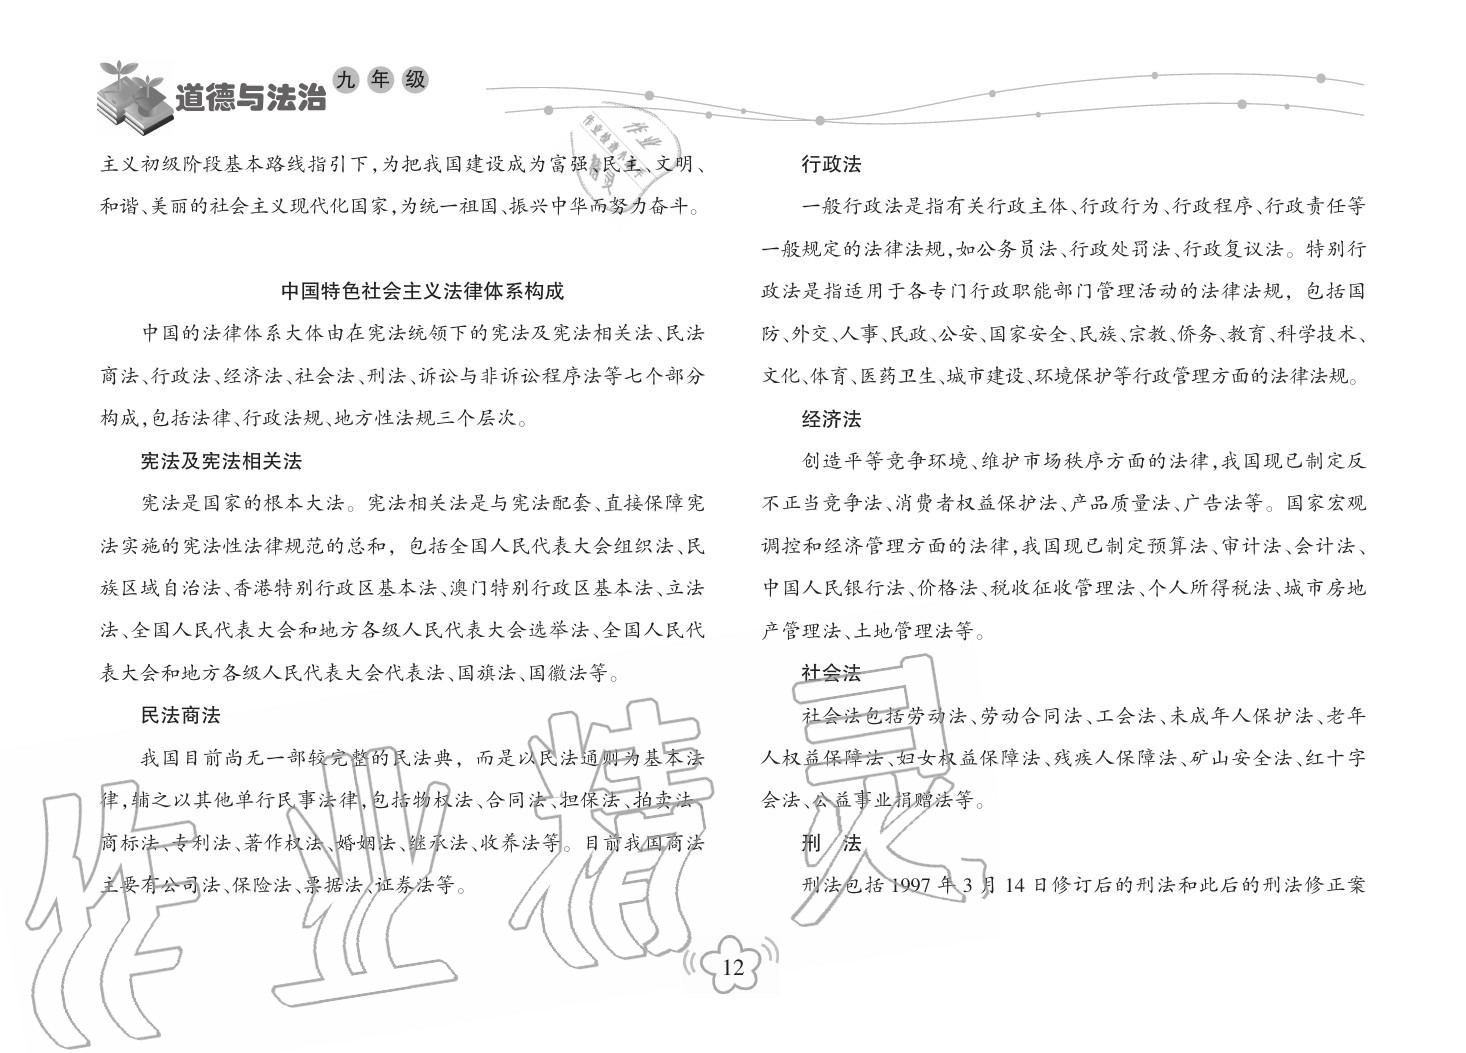 道德与法治 九年级
主义初级阶段基本路线指引下,为把我国建设成为富强、民主、文明、
和谐、美丽的社会主义现代化国家,为统一祖国、振兴中华而努力奋斗。
中国特色社会主义法律体系构成
中国的法律体系大体由在宪法统领下的宪法及宪法相关法、民法
商法、行政法、经济法、社会法、刑法、诉讼与非诉讼程序法等七个部分
构成,包括法律、行政法规、地方性法规三个层次。
宪法及宪法相关法
宪法是国家的根本大法。宪法相关法是与宪法配套、直接保障宪
法实施的宪法性法律规范的总和，包括全国人民代表大会组织法、民
族区域自治法、香港特别行政区基本法、澳门特别行政区基本法、立法
法、全国人民代表大会和地方各级人民代表大会选举法、全国人民代
表大会和地方各级人民代表大会代表法、国旗法、国徽法等。
民法商法
我国目前尚无一部较完整的民法典，而是以民法通则为基本法
律,辅之以其他单行民事法律,包括物权法、合同法、担保法、拍卖法、
商标法、专利法、著作权法、婚姻法、继承法、收养法等。目前我国商法
主要有公司法、保险法、票据法、证券法等。
行政法
一般行政法是指有关行政主体、行政行为、行政程序、行政责任等
一般规定的法律法规,如公务员法、行政处罚法、行政复议法。特别行
政法是指适用于各专门行政职能部门管理活动的法律法规，包括国
防、外交、人事、民政、公安、国家安全、民族、宗教、侨务、教育、科学技术、
文化、体育、医药卫生、城市建设、环境保护等行政管理方面的法律法规。
经济法
创造平等竞争环境、维护市场秩序方面的法律,我国现已制定反
不正当竞争法、消费者权益保护法、产品质量法、广告法等。国家宏观
调控和经济管理方面的法律,我国现已制定预算法、审计法、会计法、
中国人民银行法、价格法、税收征收管理法、个人所得税法、城市房地
产管理法、土地管理法等。
社会法
社会法包括劳动法、劳动合同法、工会法、未成年人保护法、老年
人权益保障法、妇女权益保障法、残疾人保障法、矿山安全法、红十字
会法、公益事业捐赠法等。
刑　法
刑法包括 1997 年 3 月 14 日修订后的刑法和此后的刑法修正案
12
作业精灵
作业
作业检查小助手
精灵